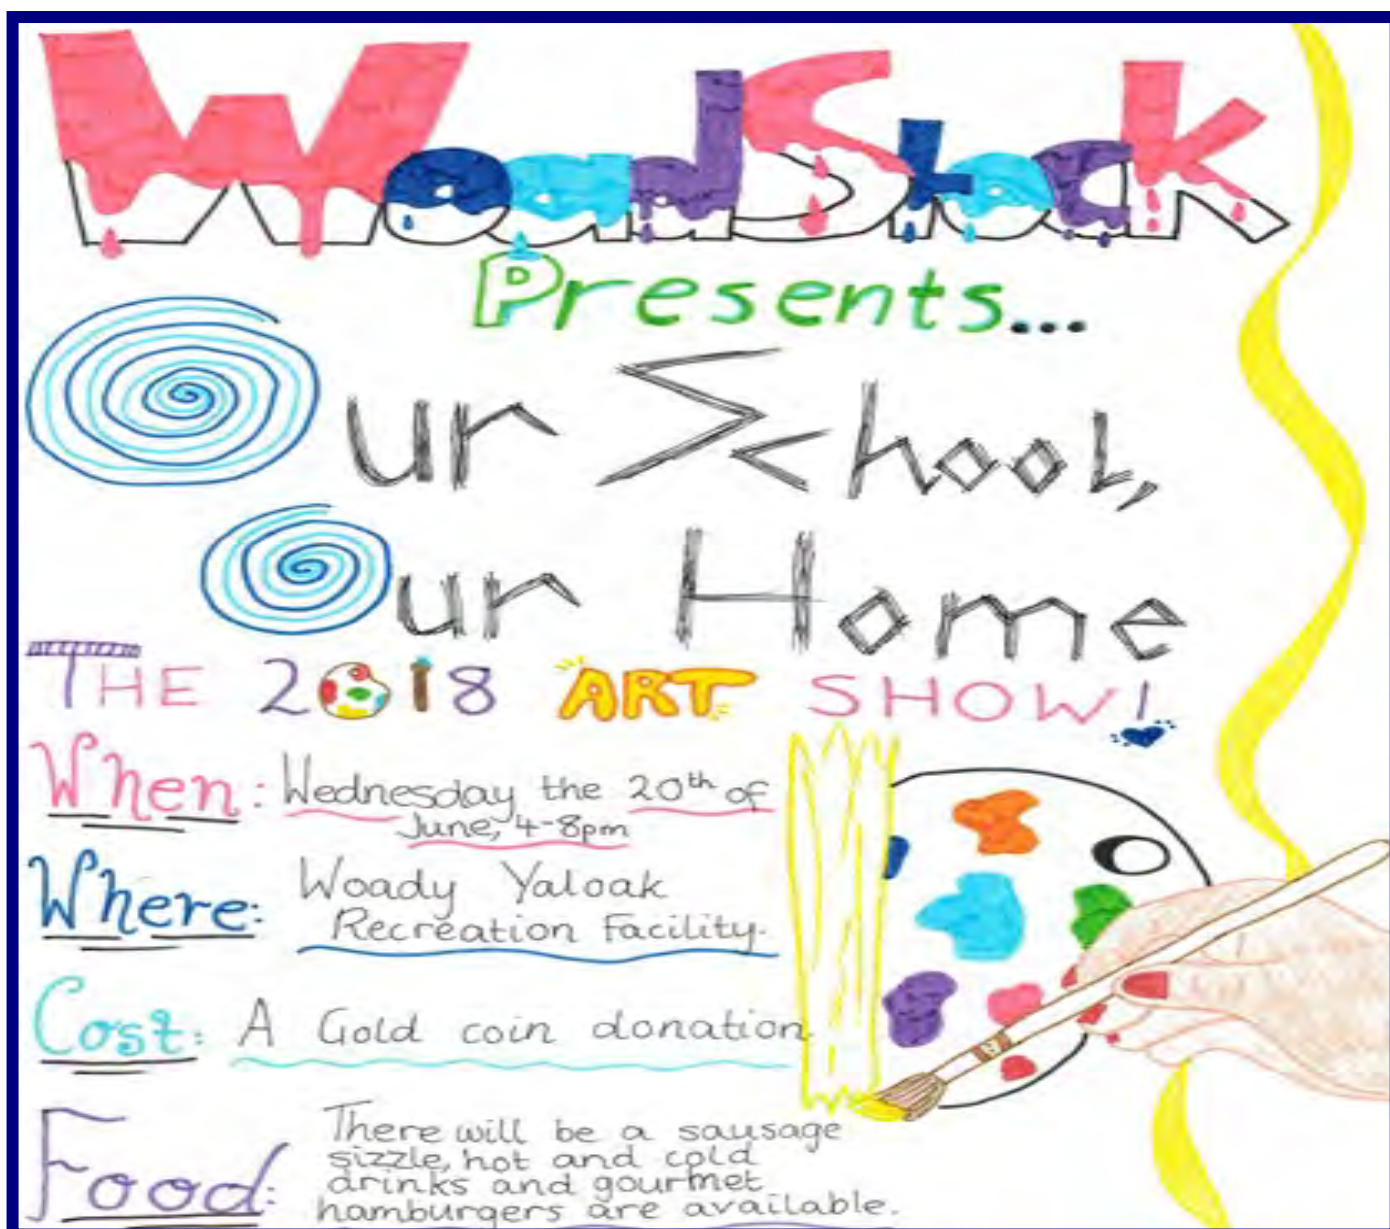 WoadStock
Presents...
Our School,
Our Home
THE 2018 ART SHOW!
When: Wednesday the 20th of
June, 4-8pm
Where: Woady Yaloak
Recreation Facility.
Cost: A Gold coin donation.
Food: There will be a sausage
sizzle, hot and cold
drinks and gourmet
hamburgers are available.